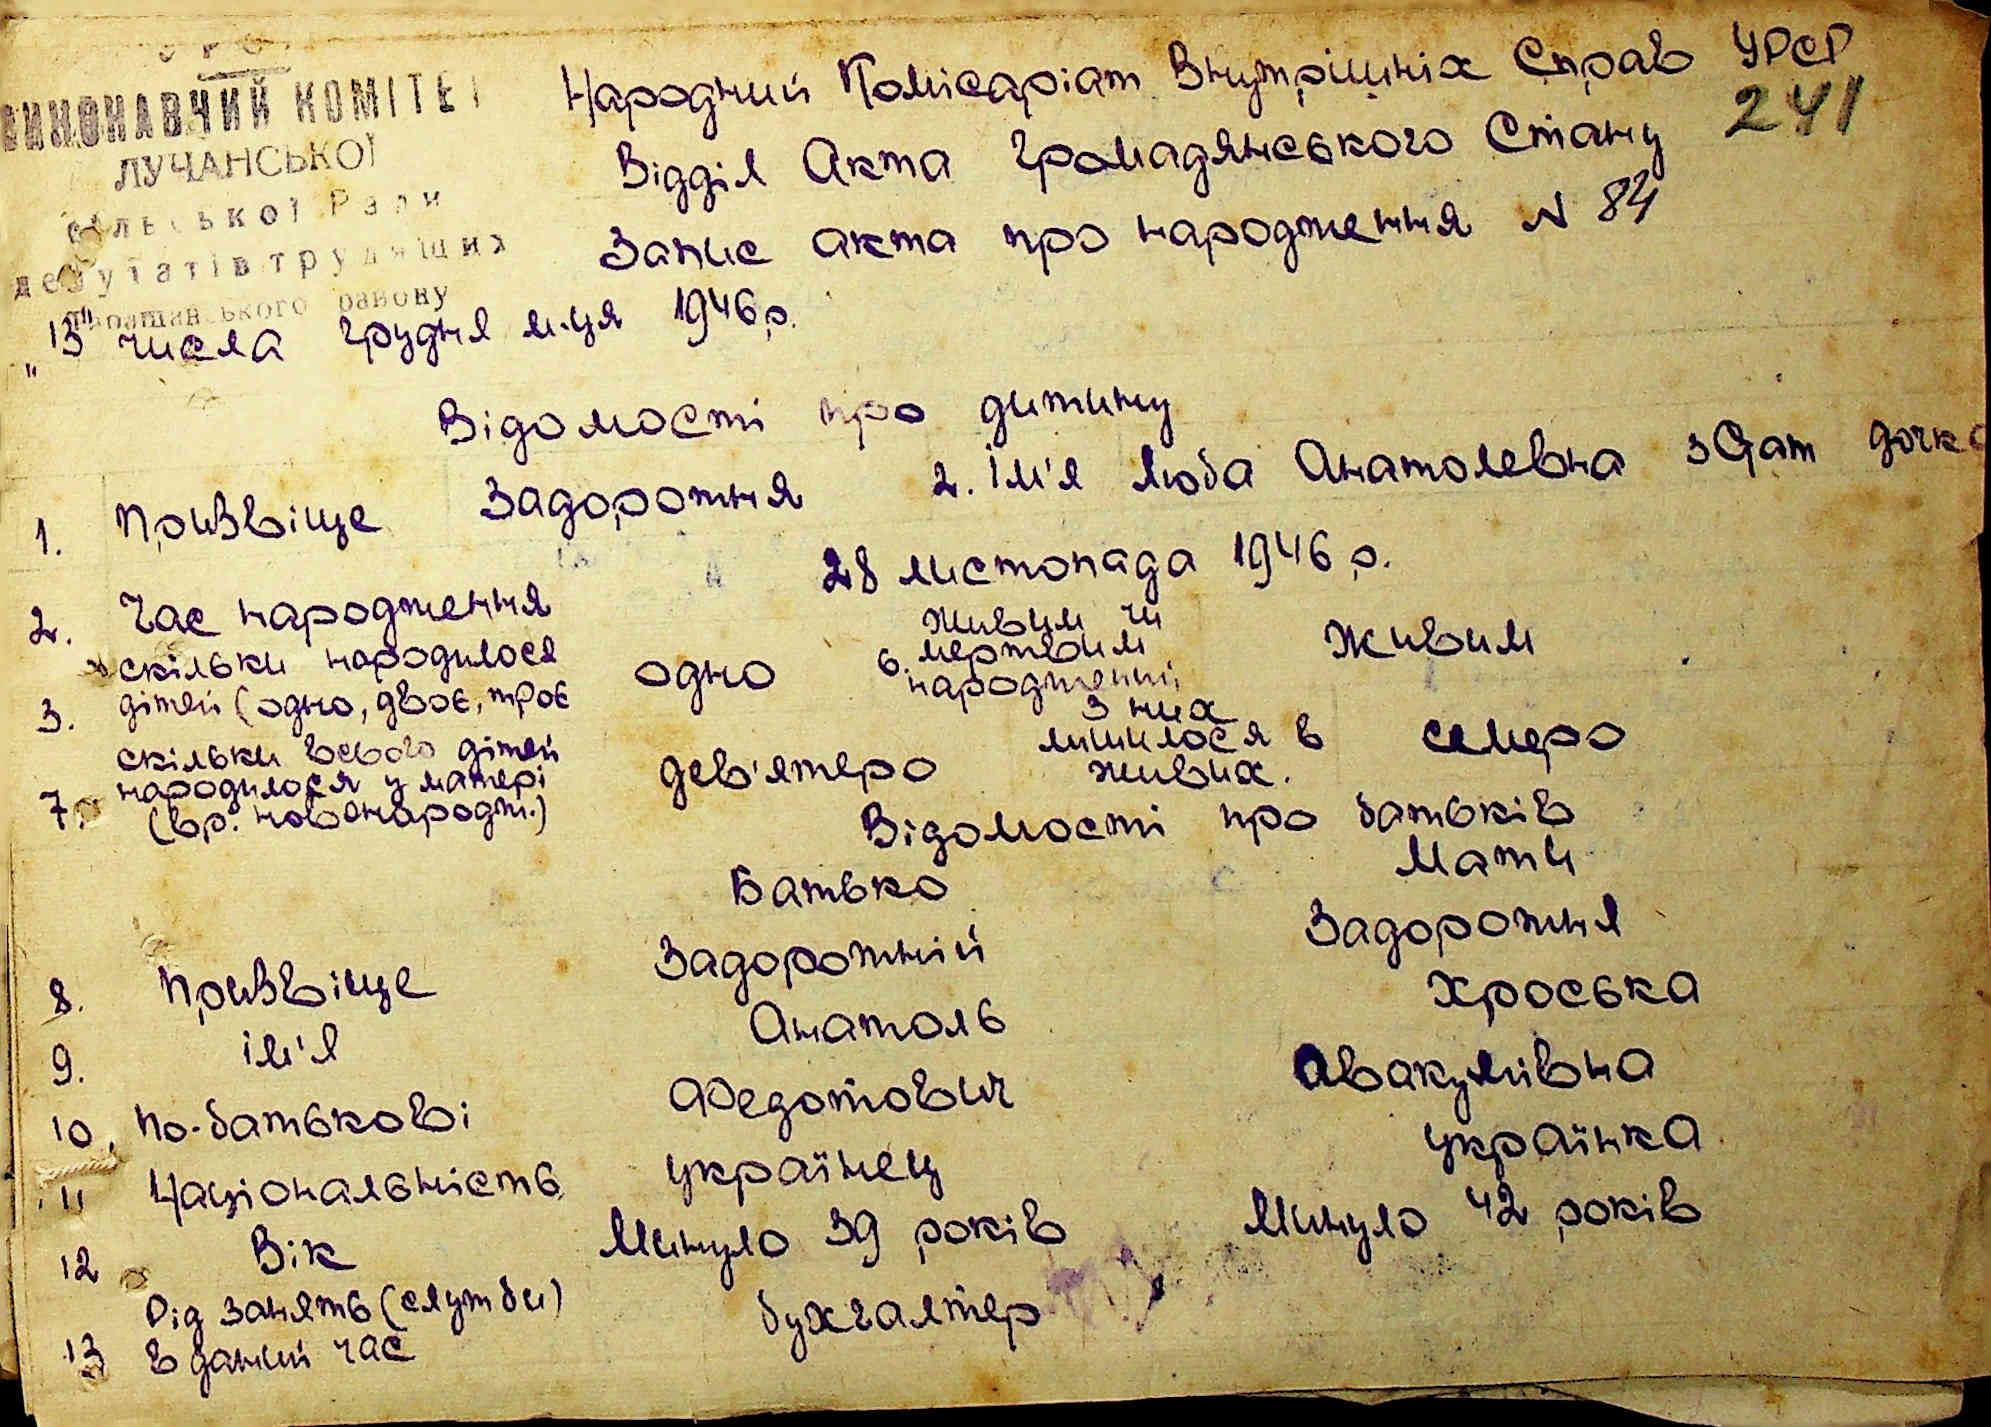 У Р С Р
ВИКОНАВЧИЙ КОМІТЕТ
ЛУЧАНСЬКОЇ
сільської Ради
депутатів трудящих
району
Народний Комісаріат Внутрішніх Справ УРСР
241
Відділ Акта Громадянського Стану
Запис акта про народження N 84
"13" числа грудня м-ця 1946 р.
Відомості про дитину
1. Призвіще Задорожня 2. Ім'я Люба Анатолевна 3 Стат дочка
2. Час народження 28 листопада 1946 р.
3. скільки народилося дітей (одно, двоє, троє одно 6. живим чи мертвим народжений живим
7. скільки всього дітей народилося у матері (вр. новонародж.) дев'ятеро з них лишилося в живих. семеро
Відомості про батьків
Батько Мати
8. Призвіще Задорожній Задорожня
9. ім'я Анатоль Хроська
10. по-батькові Федотович Авакумівна
11 Національність українец українка
12 Вік Минуло 39 років Минуло 42 років
13 Рід занять (служби) в даний час бухгалтер